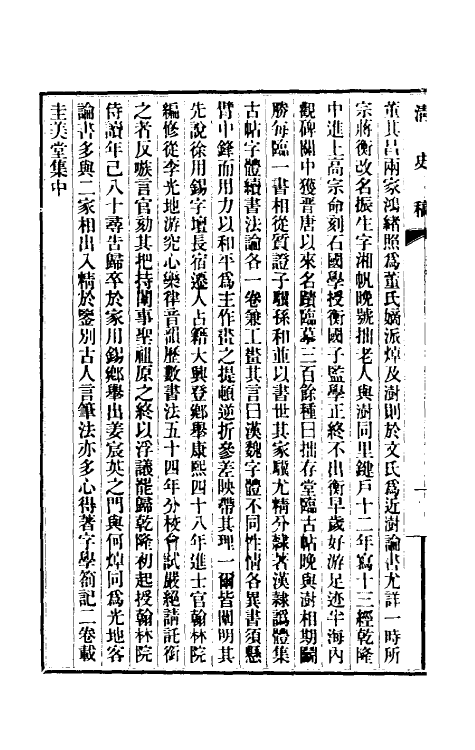 清史稿
董其昌兩家鴻緒照爲董氏嫡派焯及澍則於文氏爲近澍論書尤詳一時所
宗蔣衡改名振生字湘帆晚號拙老人與澍同里鍵戶十二年寫十三經乾隆
中進上高宗命刻石國學授衡國子監學正終不出衡早歲好游足迹半海內
觀碑關中獲晉唐以來名蹟臨摹三百餘種曰拙存堂臨古帖晚與澍相期鬬
勝每臨一書相從質證子驥孫和並以書世其家驥尤精分隸著漢隸譌體集
古帖字體續書法論各一卷兼工畫其言曰漢魏字體不同性情各異書須懸
臂中鋒而用力以和平爲主作畫之提頓逆折參差映帶其理一爾皆闡明其
先說徐用錫字壇長宿遷人占籍大興登鄉舉康熙四十八年進士官翰林院
編修從李光地游究心樂律音韻歷數書法五十四年分校會試嚴絕請託銜
之者反嗾言官劾其把持闈事聖祖原之終以浮議罷歸乾隆初起授翰林院
侍讀年已八十尋告歸卒於家用錫鄉舉出姜宸英之門與何焯同爲光地客
論書多與二家相出入精於鑒別古人言筆法亦多心得著字學劄記二卷載
圭美堂集中